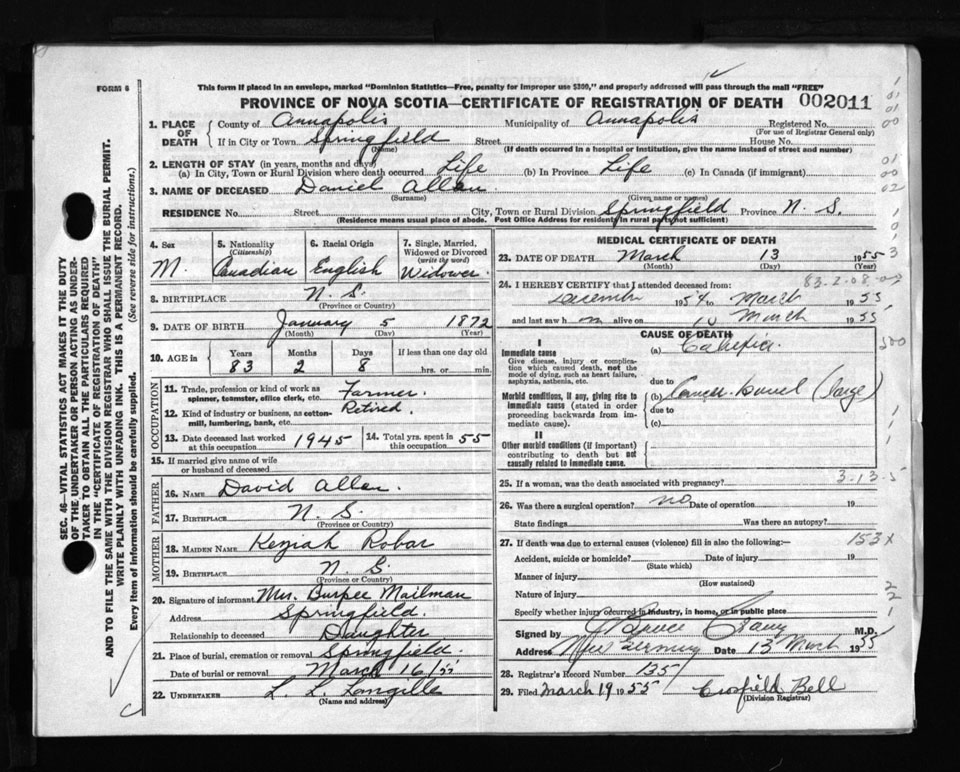 FORM 6
This form if placed in an envelope, marked "Dominion Statistics—Free, penalty for improper use $300," and properly addressed will pass through the mail "FREE"
PROVINCE OF NOVA SCOTIA—CERTIFICATE OF REGISTRATION OF DEATH 002011
1. PLACE OF DEATH
County of Annapolis Municipality of Annapolis Registered No.
(For use of Registrar General only)
If in City or Town Springfield Street House No.
(Name) (If death occurred in a hospital or institution, give the name instead of street and number)
2. LENGTH OF STAY (in years, months and days)
(a) In City, Town or Rural Division where death occurred Life (b) In Province Life (c) In Canada (if immigrant)
3. NAME OF DECEASED Daniel Allen
(Surname) (Given name or names)
RESIDENCE No. Street City, Town or Rural Division Springfield Province N. S.
(Residence means usual place of abode. Post Office Address for residents in rural parts not sufficient)
4. Sex
M.
5. Nationality
(Citizenship)
Canadian
6. Racial Origin
English
7. Single, Married, Widowed or Divorced
(write the word)
Widower
8. BIRTHPLACE N. S.
(Province or Country)
9. DATE OF BIRTH January 5 1872
(Month) (Day) (Year)
10. AGE in
Years Months Days If less than one day old
83 2 8 hrs. or min.
OCCUPATION
11. Trade, profession or kind of work as spinner, teamster, office clerk, etc. Farmer
12. Kind of industry or business, as cotton-mill, lumbering, bank, etc. Retired
13. Date deceased last worked at this occupation 1945
14. Total yrs. spent in this occupation 55
15. If married give name of wife or husband of deceased
FATHER
16. NAME David Allen
17. BIRTHPLACE N. S.
(Province or Country)
MOTHER
18. MAIDEN NAME Keziah Robar
19. BIRTHPLACE N. S.
(Province or Country)
20. Signature of informant Mrs. Burpee Mailman
Address Springfield.
Relationship to deceased Daughter
21. Place of burial, cremation or removal Springfield.
Date of burial or removal March 16/55
22. UNDERTAKER L. L. Langille
(Name and address)
MEDICAL CERTIFICATE OF DEATH
23. DATE OF DEATH March 13 1955
(Month) (Day) (Year)
24. I HEREBY CERTIFY that I attended deceased from:
December 1954 to March 1955
and last saw h m alive on 10 March 1955
CAUSE OF DEATH
I
Immediate cause
Give disease, injury or complication which caused death, not the mode of dying, such as heart failure, asphyxia, asthenia, etc.
(a)
due to
Morbid conditions, if any, giving rise to immediate cause (stated in order proceeding backwards from immediate cause).
(b) Cancer Bowel (large)
due to
(c)
II
Other morbid conditions (if important) contributing to death but not causally related to immediate cause.
500
25. If a woman, was the death associated with pregnancy?
3-13-5
26. Was there a surgical operation? no Date of operation 19
State findings Was there an autopsy?
27. If death was due to external causes (violence) fill in also the following:— 153x
Accident, suicide or homicide? Date of injury 19
(State which)
Manner of injury
(How sustained)
Nature of injury
Specify whether injury occurred in industry, in home, or in public place
Signed by Bruce M.D.
Address New Germany Date 13 March 1955
28. Registrar's Record Number 135
29. Filed March 19 1955 Crosfield Bell
(Division Registrar)
SEC. 46—VITAL STATISTICS ACT MAKES IT THE DUTY
OF THE UNDERTAKER OR PERSON ACTING AS UNDER-
TAKER TO OBTAIN ALL THE PARTICULARS REQUIRED
IN THE "CERTIFICATE OF REGISTRATION OF DEATH"
AND TO FILE THE SAME WITH THE DIVISION REGISTRAR WHO SHALL ISSUE THE BURIAL PERMIT.
WRITE PLAINLY WITH UNFADING INK. THIS IS A PERMANENT RECORD.
Every item of information should be carefully supplied. (See reverse side for instructions.)